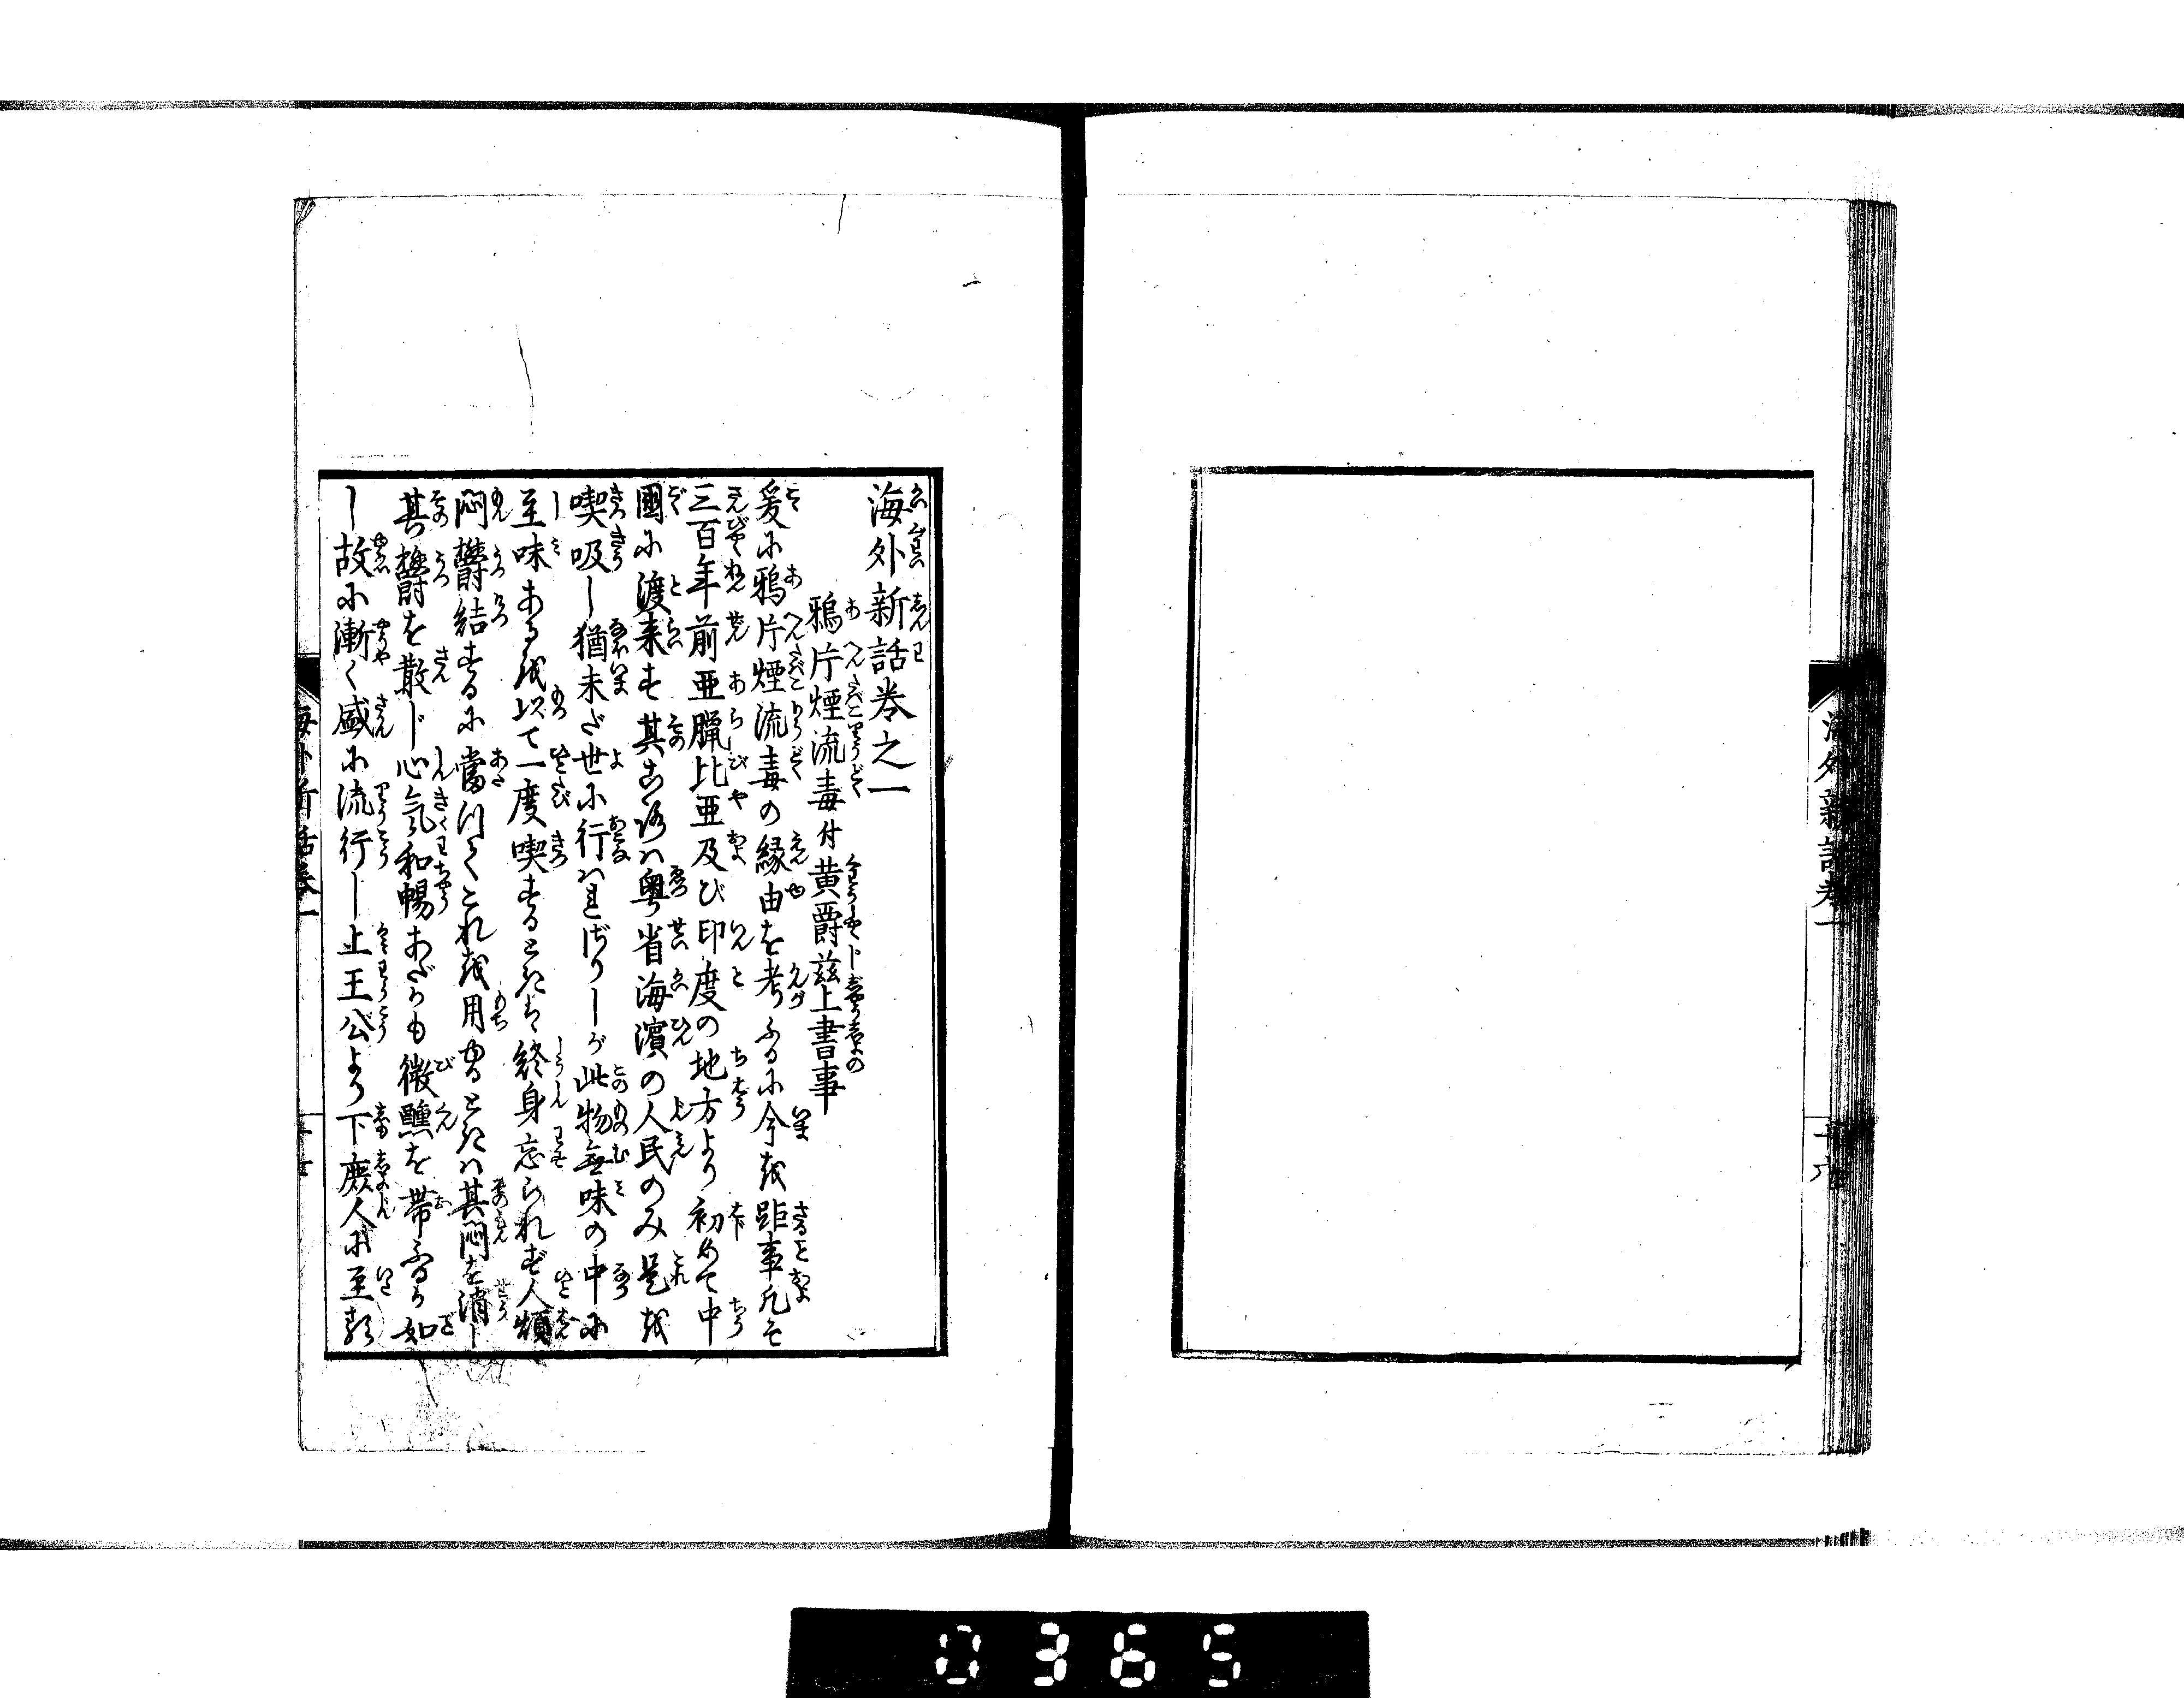 海外新話卷之一
鴉片煙流毒付黄爵茲上書事
爰に鴉片煙流毒の縁由を考ふるに今を距事凡そ
三百年前亜臘比亜及び印度の地方より初めて中
國に渡来す其ころは粤省海濱の人民のみ是を
喫吸し猶未だ世に行はれざりしが此物無味の中に
至味あるを以て一度喫するときは終身忘られず人煩
悶欝結するに當つてこれを用ゆるときは其悶を消し
其欝を散じ心気和暢あだかも微醺を帯ふるが如
し故に漸く盛に流行し上王公より下庶人に至る
海外新話卷一
0365